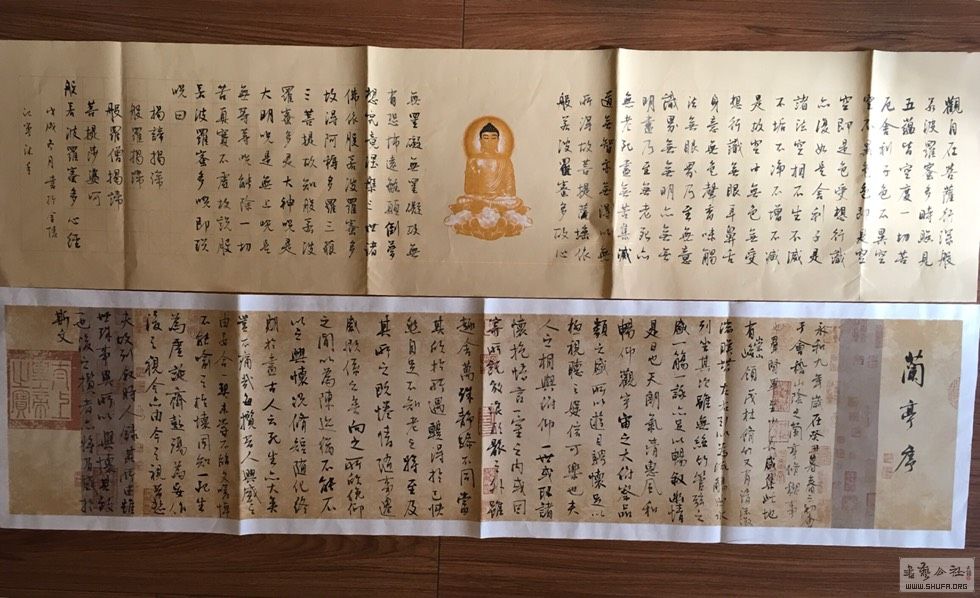 觀自在菩薩行深般
若波羅蜜多時照見
五蘊皆空度一切苦
厄舍利子色不異空
空不異色色即是空
空即是色受想行識
亦復如是舍利子是
諸法空相不生不滅
不垢不淨不增不減
是故空中無色無受
想行識無眼耳鼻舌
身意無色聲香味觸
法無眼界乃至無意
識界無無明亦無無
明盡乃至無老死亦
無老死盡無苦集滅
道無智亦無得以無
所得故菩提薩埵依
般若波羅蜜多故心
無罣礙無罣礙故無
有恐怖遠離顛倒夢
想究竟涅槃三世諸
佛依般若波羅蜜多
故得阿耨多羅三藐
三菩提故知般若波
羅蜜多是大神咒是
大明咒是無上咒是
無等等咒能除一切
苦真實不虛故說般
若波羅蜜多咒即說
咒曰
揭諦揭諦
般羅揭諦
般羅僧揭諦
菩提莎婆呵
般若波羅蜜多心經
戊戌六月書於
蘭亭序
永和九年歲在癸丑暮春之初會
于會稽山陰之蘭亭脩禊事
也羣賢畢至少長咸集此地
有崇山峻領茂林脩竹又有清流激
湍暎帶左右引以為流觴曲水
列坐其次雖無絲竹管弦之
盛一觴一詠亦足以暢敘幽情
是日也天朗氣清惠風和
暢仰觀宇宙之大俯察品
類之盛所以遊目騁懷足以
極視聽之娛信可樂也夫
人之相與俯仰一世或取諸
懷抱悟言一室之內或因
寄所託放浪形骸之外雖
趣舍萬殊靜躁不同當
其欣於所遇暫得於己快
然自足不知老之將至及
其所之既惓情隨事遷
感慨係之矣向之所欣俛仰
之間以為陳迹猶不能不
以之興懷況脩短隨化終
期於盡古人云死生亦大矣
豈不痛哉每攬昔人興感之
由若合一契未嘗不臨文嗟悼
不能喻之於懷固知一死生
為虛誕齊彭殤為妄作
後之視今亦由今之視昔悲
夫故列敘時人錄其所述雖
世殊事異所以興懷其致
一也後之攬者亦將有感於
斯文
WWW.SHUFA.ORG